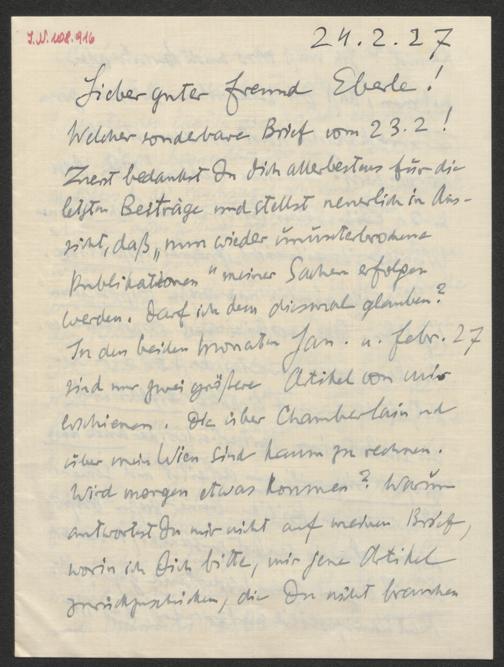 I.N. 198.916
24.2.27
Lieber guter Freund Eberle!
Welcher sonderbare Brief vom 23.2!
Zuerst bedankst Du Dich allerbestens für die
letzten Beiträge und stellst neuerlich in Aus-
sicht, daß „nun wieder ununterbrochene
Publikationen" meiner Sachen erfolgen
werden. Darf ich dem diesmal glauben?
In den beiden Monaten Jan. u. Febr. 27
sind nur zwei größere Artikel von mir
erschienen. Die über Chamberlain und
über mein Wien sind kaum zu rechnen.
Wird morgen etwas kommen? Warum
antwortest Du mir nicht auf meinen Brief,
worin ich Dich bitte, mir jene Artikel
zurückzuschicken, die Du nicht brauchen